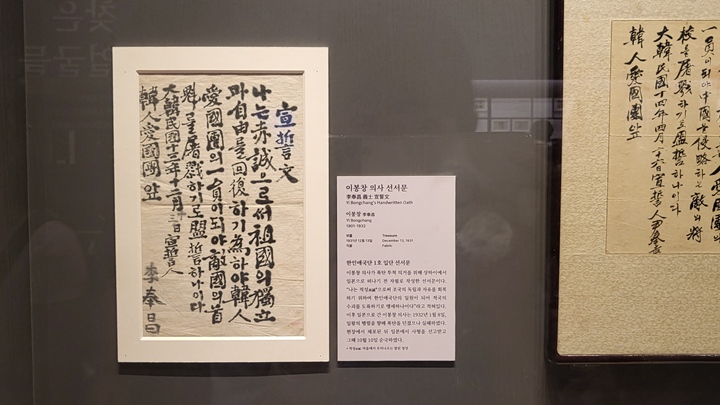 宣誓文
나는赤誠으로써祖國의獨立
과自由를回復하기爲하야韓人
愛國團의一員이되야敵國의首
魁를屠戮하기로盟誓하나이다
大韓民國十三年十二月十三日 宣誓人
李奉昌
韓人愛國團앞
이봉창 의사 선서문
李奉昌 義士 宣誓文
Yi Bongchang's Handwritten Oath
이봉창 李奉昌
Yi Bongchang
1901-1932
보물 Treasure
1931년 12월 13일 December 13, 1931
직물 Fabric
한인애국단 1호 입단 선서문
이봉창 의사가 폭탄 투척 의거를 위해 상하이에서
일본으로 떠나기 전 자필로 작성한 선서문이다.
"나는 적성赤誠*으로써 조국의 독립과 자유를 회복
하기 위하여 한인애국단의 일원이 되어 적국의
수괴를 도륙하기로 맹세하나이다"라고 적혀있다.
이후 일본으로 간 이봉창 의사는 1932년 1월 8일,
일왕의 행렬을 향해 폭탄을 던졌으나 실패하였다.
현장에서 체포된 뒤 일본에서 사형을 선고받고
그해 10월 10일 순국하였다.
* 적성赤誠: 마음에서 우러나오는 참된 정성
一員이되야中國을侵略하는敵의將
校를屠戮하기로盟誓하나이다
大韓民國十四年四月二十六日宣誓人尹奉吉
韓人愛國團앞